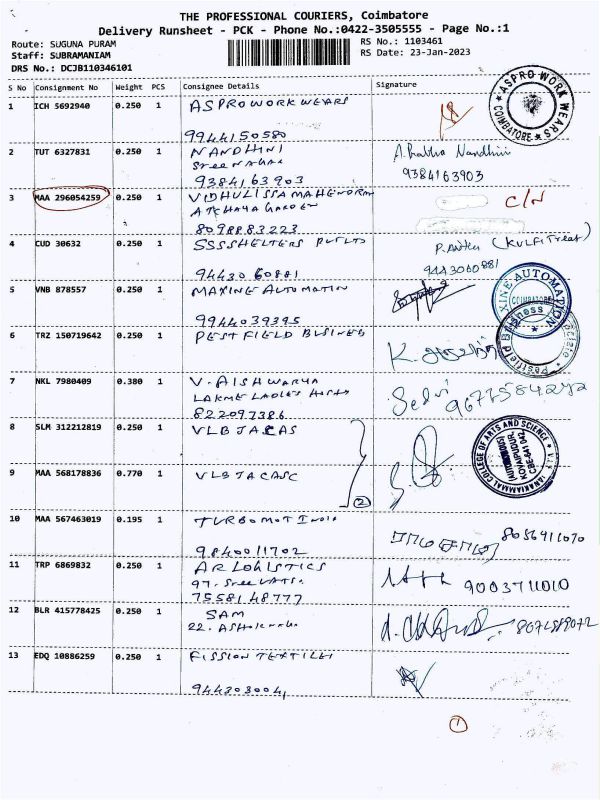 THE PROFESSIONAL COURIERS, Coimbatore
Delivery Runsheet - PCK - Phone No.:0422-3505555 - Page No.:1
Route: SUGUNA PURAM
RS No.: 1103461
Staff: SUBRAMANIAM
RS Date: 23-Jan-2023
DRS No.: DCJB110346101
S No Consignment No Weight PCS Consignee Details Signature
1 ICH 5692940 0.250 1 ASPRO WORK WEARS
9944150580
ASPRO WORK WEARS
COIMBATORE
2 TUT 6327831 0.250 1 NANDHINI
Sree NAGAR
9384163903
Nandhini
9384163903
3 MAA 296054259 0.250 1 VIDHULISSA MAHENDRAN
ATCHAYA GARDEN
8098883223
C/N
4 CUD 30632 0.250 1 SSSSHELTERS PVT LTD
9443060881
(KULFI Treat)
9443060881
5 VNB 878557 0.250 1 MAXINE AUTOMATIN
9944039395
XINE AUTOMATION
COIMBATORE
6 TRZ 150719642 0.250 1 PEST FIELD BUSINES
Pestfield Business
7 NKL 7980409 0.380 1 V. AISHWARYA
LAKME LADIES HOSTS
822097386
Selvi
8 SLM 312212819 0.250 1 VLB JACAS
JANAKIAMMAL COLLEGE OF ARTS AND SCIENCE
(AUTONOMOUS)
KOVAIPUDUR
CBE-641 042
9 MAA 568178836 0.770 1 VLB JACASC
2
10 MAA 567463019 0.195 1 TURBOMOT India
9840011702
8056911070
11 TRP 6869832 0.250 1 AR LOGISTICS
97. Sree VATSA
7558148777
9003711010
12 BLR 415778425 0.250 1 SAM
22.
13 EDQ 10886259 0.250 1 FISSION TEXTILE
9442030041
1